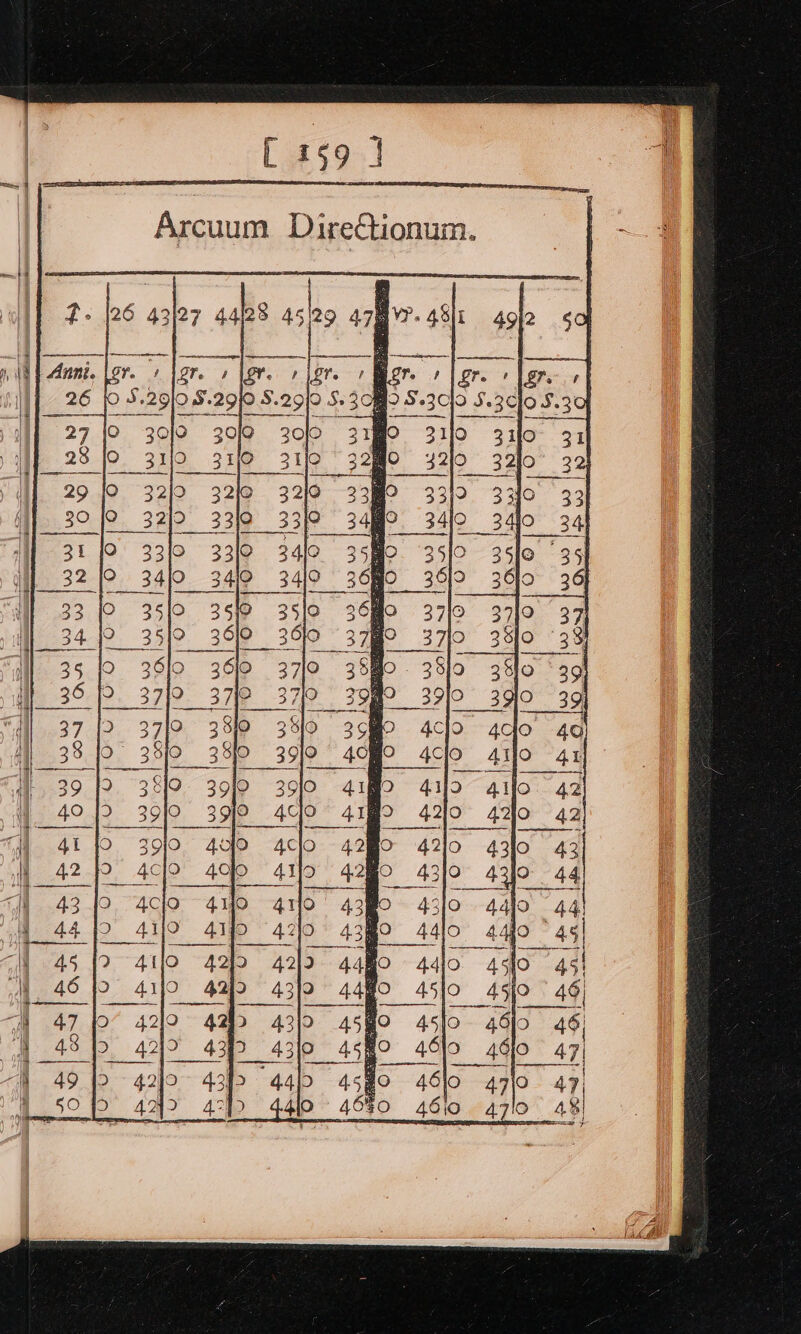 [ 159 ]
Arcuum Directionum.
♃. 26 43 27 44 28 45 29 47 ♑. 48 1 49 2 50
Anni. gr. ′ gr. ′ gr. ′ gr. ′ gr. ′ gr. ′ gr. ′
26 0 S.29 0 S.29 0 S.29 0 S.30 0 S.30 0 S.30 0 S.30
27 0 30 0 30 0 30 0 31 0 31 0 31 0 31
28 0 31 0 31 0 31 0 32 0 32 0 32 0 32
29 0 32 0 32 0 32 0 33 0 33 0 33 0 33
30 0 32 0 33 0 33 0 34 0 34 0 34 0 34
31 0 33 0 33 0 34 0 35 0 35 0 35 0 35
32 0 34 0 34 0 34 0 36 0 36 0 36 0 36
33 0 35 0 35 0 35 0 36 0 37 0 37 0 37
34 0 35 0 36 0 36 0 37 0 37 0 38 0 38
35 0 36 0 36 0 37 0 38 0 38 0 38 0 39
36 0 37 0 37 0 37 0 39 0 39 0 39 0 39
37 0 37 0 38 0 38 0 39 0 40 0 40 0 40
38 0 38 0 38 0 39 0 40 0 40 0 41 0 41
39 0 38 0 39 0 39 0 41 0 41 0 41 0 42
40 0 39 0 39 0 40 0 41 0 42 0 42 0 42
41 0 39 0 40 0 40 0 42 0 42 0 43 0 43
42 0 40 0 40 0 41 0 42 0 43 0 43 0 44
43 0 40 0 41 0 41 0 43 0 43 0 44 0 44
44 0 41 0 41 0 42 0 43 0 44 0 44 0 45
45 0 41 0 42 0 42 0 44 0 44 0 45 0 45
46 0 41 0 42 0 43 0 44 0 45 0 45 0 46
47 0 42 0 42 0 43 0 45 0 45 0 46 0 46
48 0 42 0 43 0 43 0 45 0 46 0 46 0 47
49 0 42 0 43 0 44 0 45 0 46 0 47 0 47
50 0 42 0 43 0 44 0 46 0 46 0 47 0 48